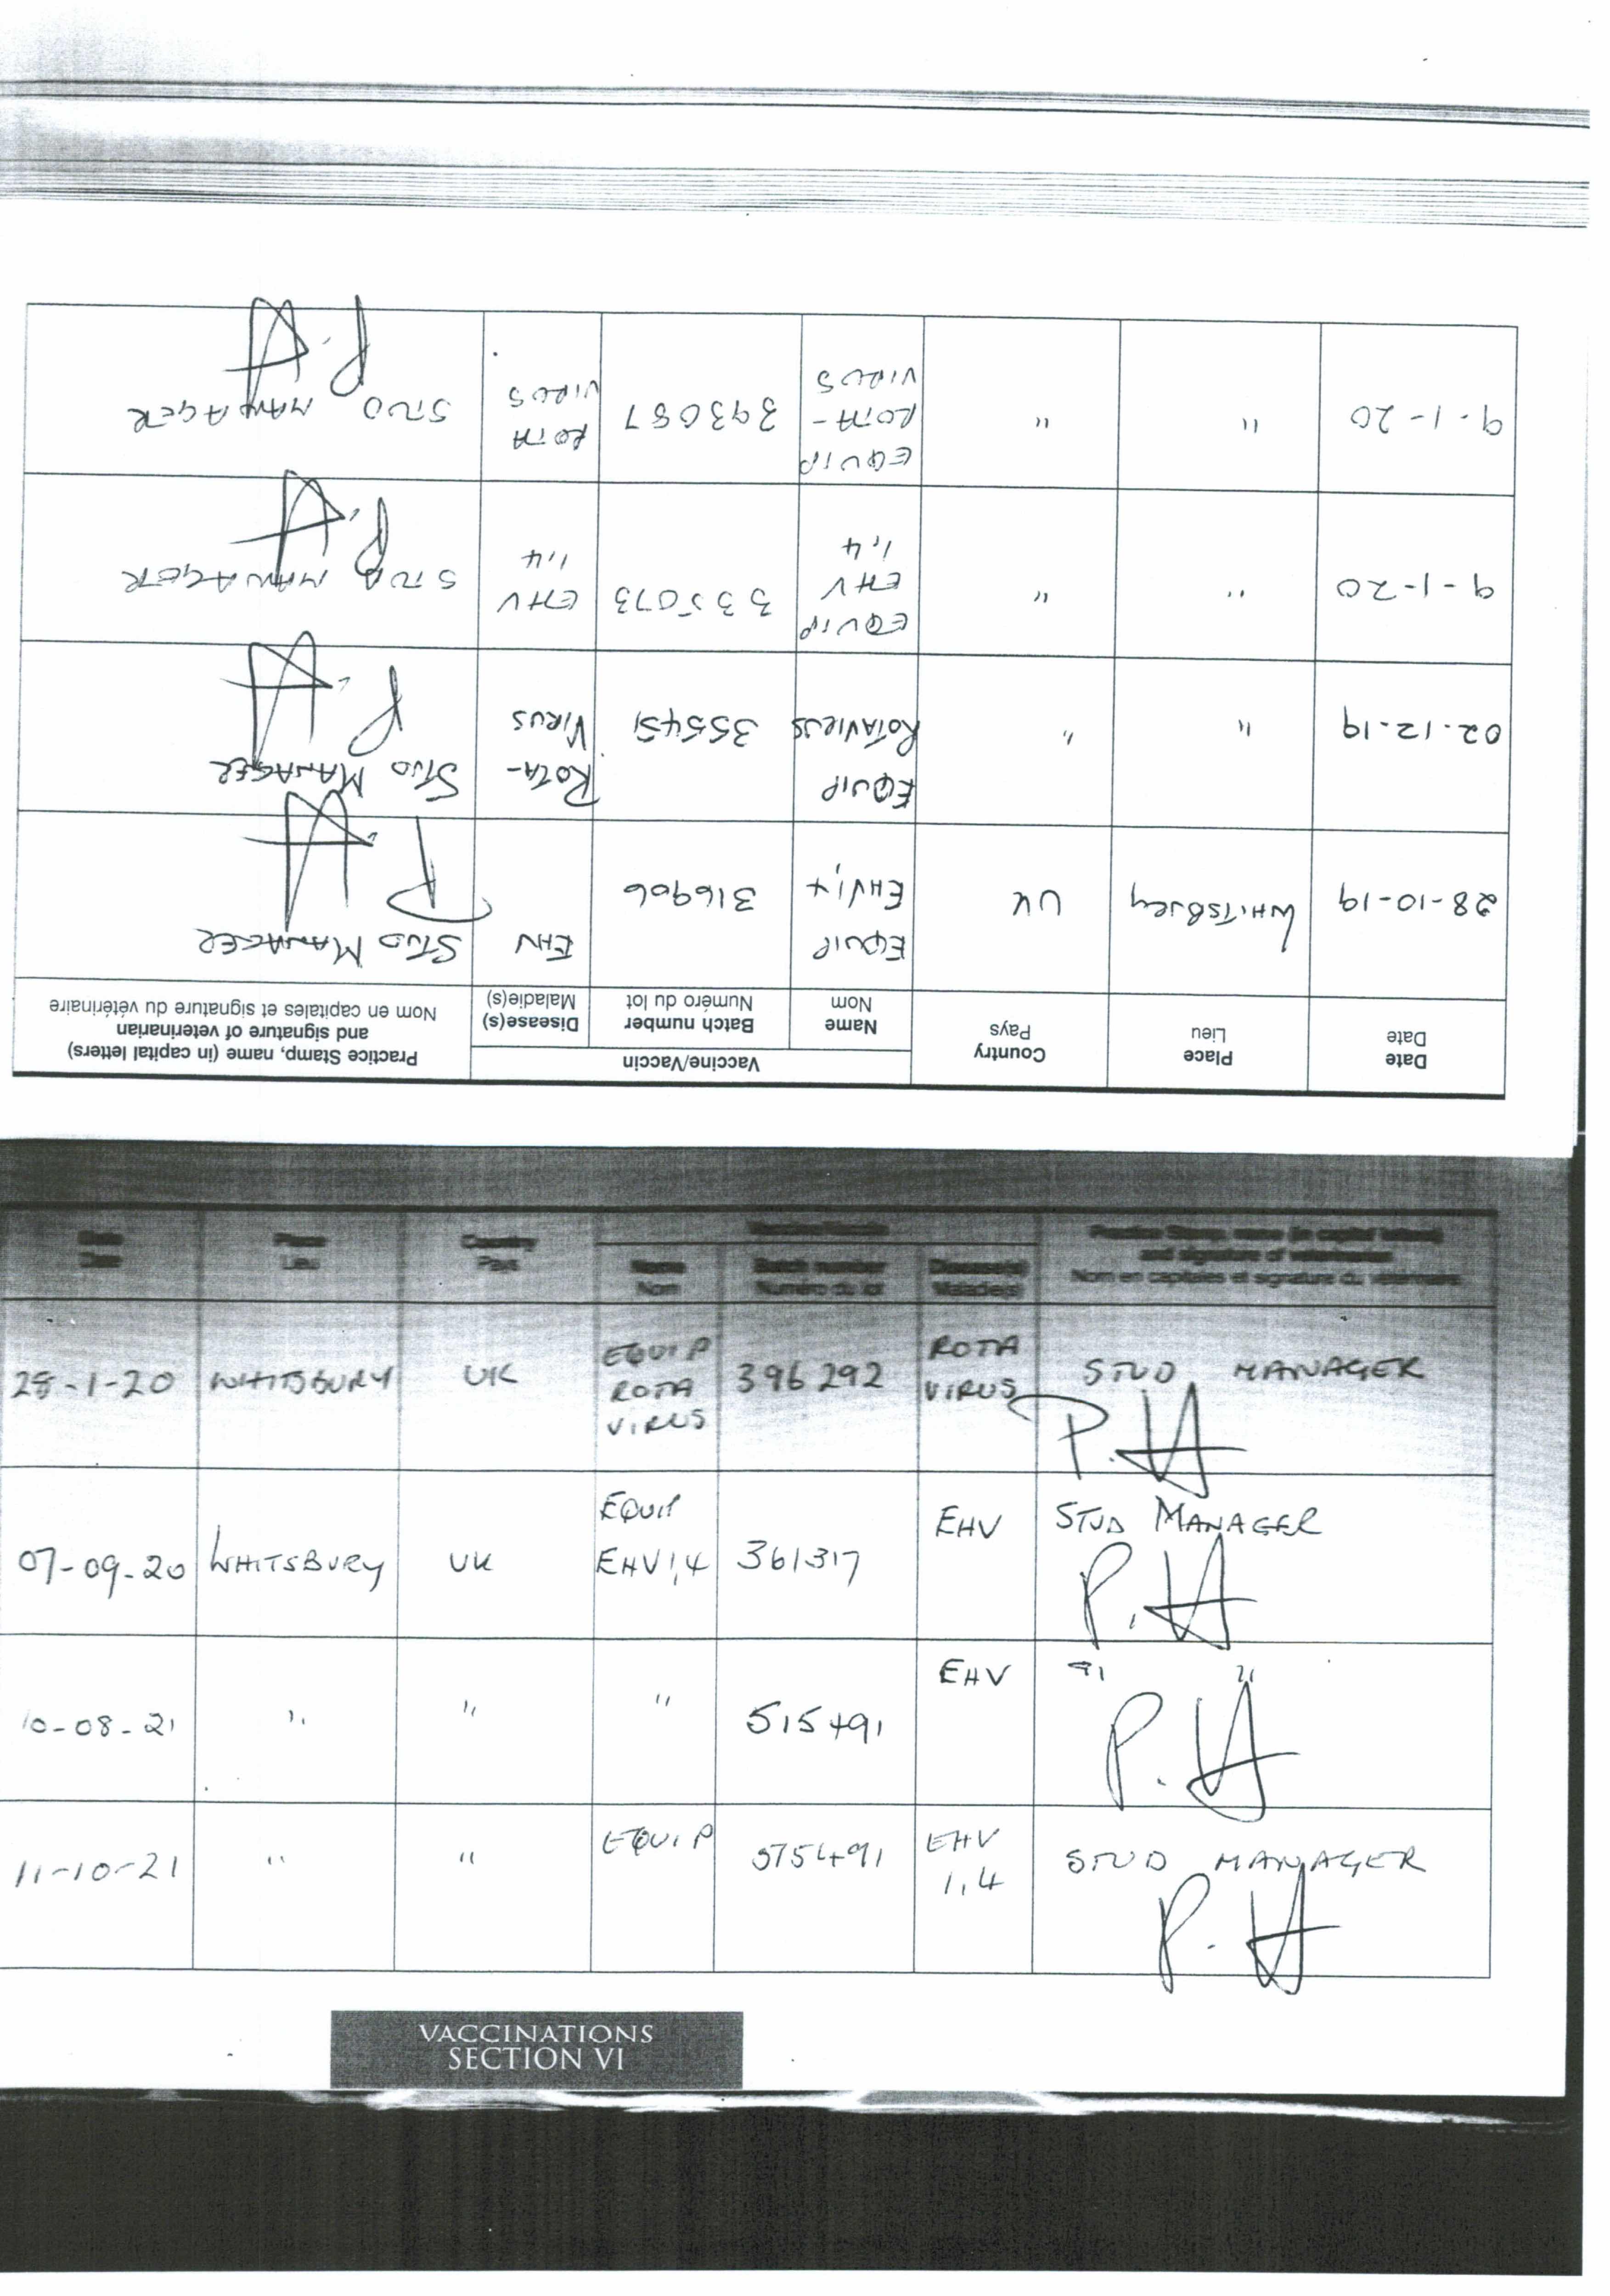 Date Place Country Vaccine/Vaccin Practice Stamp, name (in capital letters)
and signature of veterinarian
Date Lieu Pays Name Batch number Disease(s) Nom en capitales et signature du vétérinaire
Nom Numéro du lot Maladie(s)
28-10-19 WHITSBURY UK EQUIP EHV1,4 316906 EHV STUD MANAGER
02.12.19 " " EQUIP ROTAVIRUS 355451 ROTA-VIRUS STUD MANAGER
9-1-20 " " EQUIP EHV 1,4 335073 EHV 1,4 STUD MANAGER
9-1-20 " " EQUIP ROTA-VIRUS 393087 ROTA VIRUS STUD MANAGER
Date Place Country Vaccine/Vaccin Practice Stamp, name (in capital letters)
and signature of veterinarian
Date Lieu Pays Name Batch number Disease(s) Nom en capitales et signature du vétérinaire
Nom Numéro du lot Maladie(s)
28-1-20 WHITSBURY UK EQUIP ROTA VIRUS 396292 ROTA VIRUS STUD MANAGER
P.H
07-09-20 WHITSBURY UK EQUIP EHV1,4 361317 EHV STUD MANAGER
P.H
10-08-21 " " " 515491 EHV " "
P.H
11-10-21 " " EQUIP 575491 EHV 1,4 STUD MANAGER
P.H
VACCINATIONS
SECTION VI